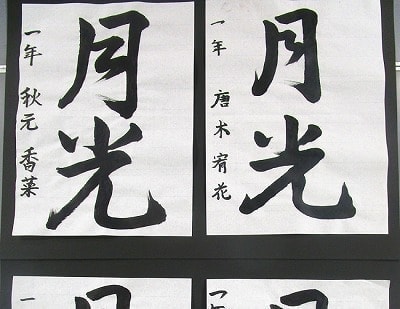 月光
一年 唐木 宥花
月光
一年 秋元 香菜
月
一年
月
一